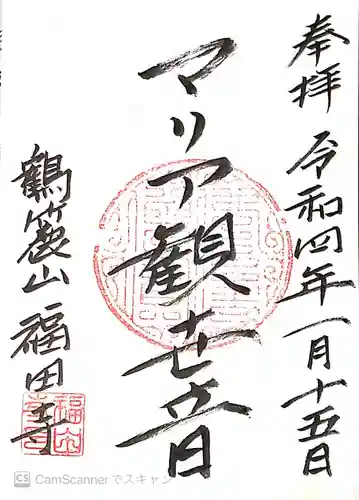 奉拝
令和四年一月十五日
マリア観世音
鶴蓑山
福田寺
CS CamScannerでスキャン